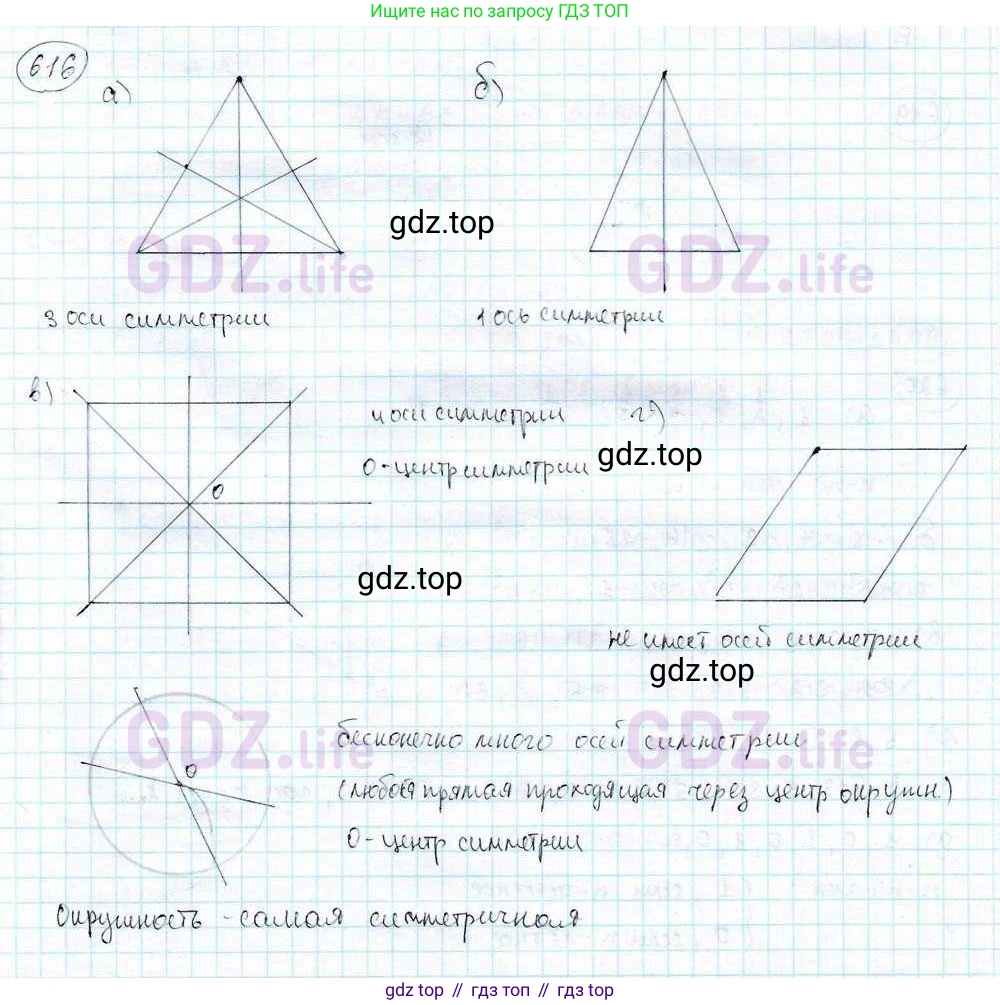 Ищите нас по запросу ГДЗ ТОП
616
а)
б)
gdz.top
GDZ.life
GDZ.life
3 оси симметрии
1 ось симметрии
в)
4 оси симметрии
г)
О - центр симметрии
gdz.top
О
gdz.top
не имеет осей симметрии
gdz.top
GDZ.life
GDZ.life
бесконечно много осей симметрии
О
(любая прямая проходящая через центр окружн.)
О - центр симметрии
Окружность - самая симметричная
gdz.top // гдз топ // gdz.top